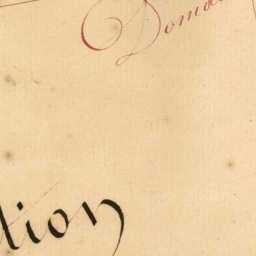 Doma
tion